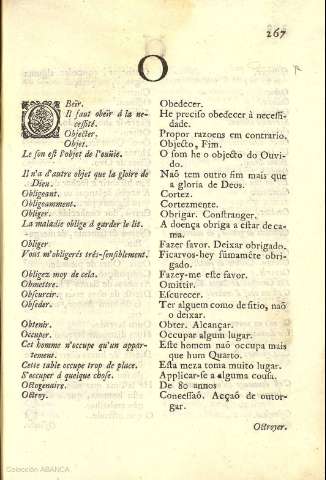 267
O
OBeïr. Obedecer.
Il faut obeïr à la ne- He preciso obedecer à necessi-
cessité. dade.
Objecter. Propor razoens em contrario.
Objet. Objecto, Fim.
Le son est l'objet de l'ouïie. O som he o objecto do Ouvi-
do.
Il n'a d'autre objet que la gloire de Naõ tem outro fim mais que
Dieu. a gloria de Deos.
Obligeant. Cortez.
Obligeamment. Cortezmente.
Obliger. Obrigar. Constranger.
La maladie oblige à garder le lit. A doença obriga a estar de ca-
ma.
Obliger Fazer favor. Deixar obrigado.
Vous m'obligerés trés-sensiblement. Ficarvos-hey sũmamẽte obri-
gado.
Obligez moy de cela. Fazey-me este favor.
Obmettre. Omittir.
Obscurcir. Escurecer.
Obseder. Ter alguem como de sitio, naõ
o deixar.
Obtenir. Obter. Alcançar.
Occuper. Occupar algum lugar.
Cet homme n'occupe qu'un appar- Este homem naõ occupa mais
tement. que hum Quarto.
Cette table occupe trop de place. Esta meza toma muito lugar.
S'occuper à quelque chose. Applicar-se a alguma cousa.
Octogenaire. De 80 annos
Octroy. Concessaõ. Acçaõ de outor-
gar.
Octroyer.
Colección ABANCA